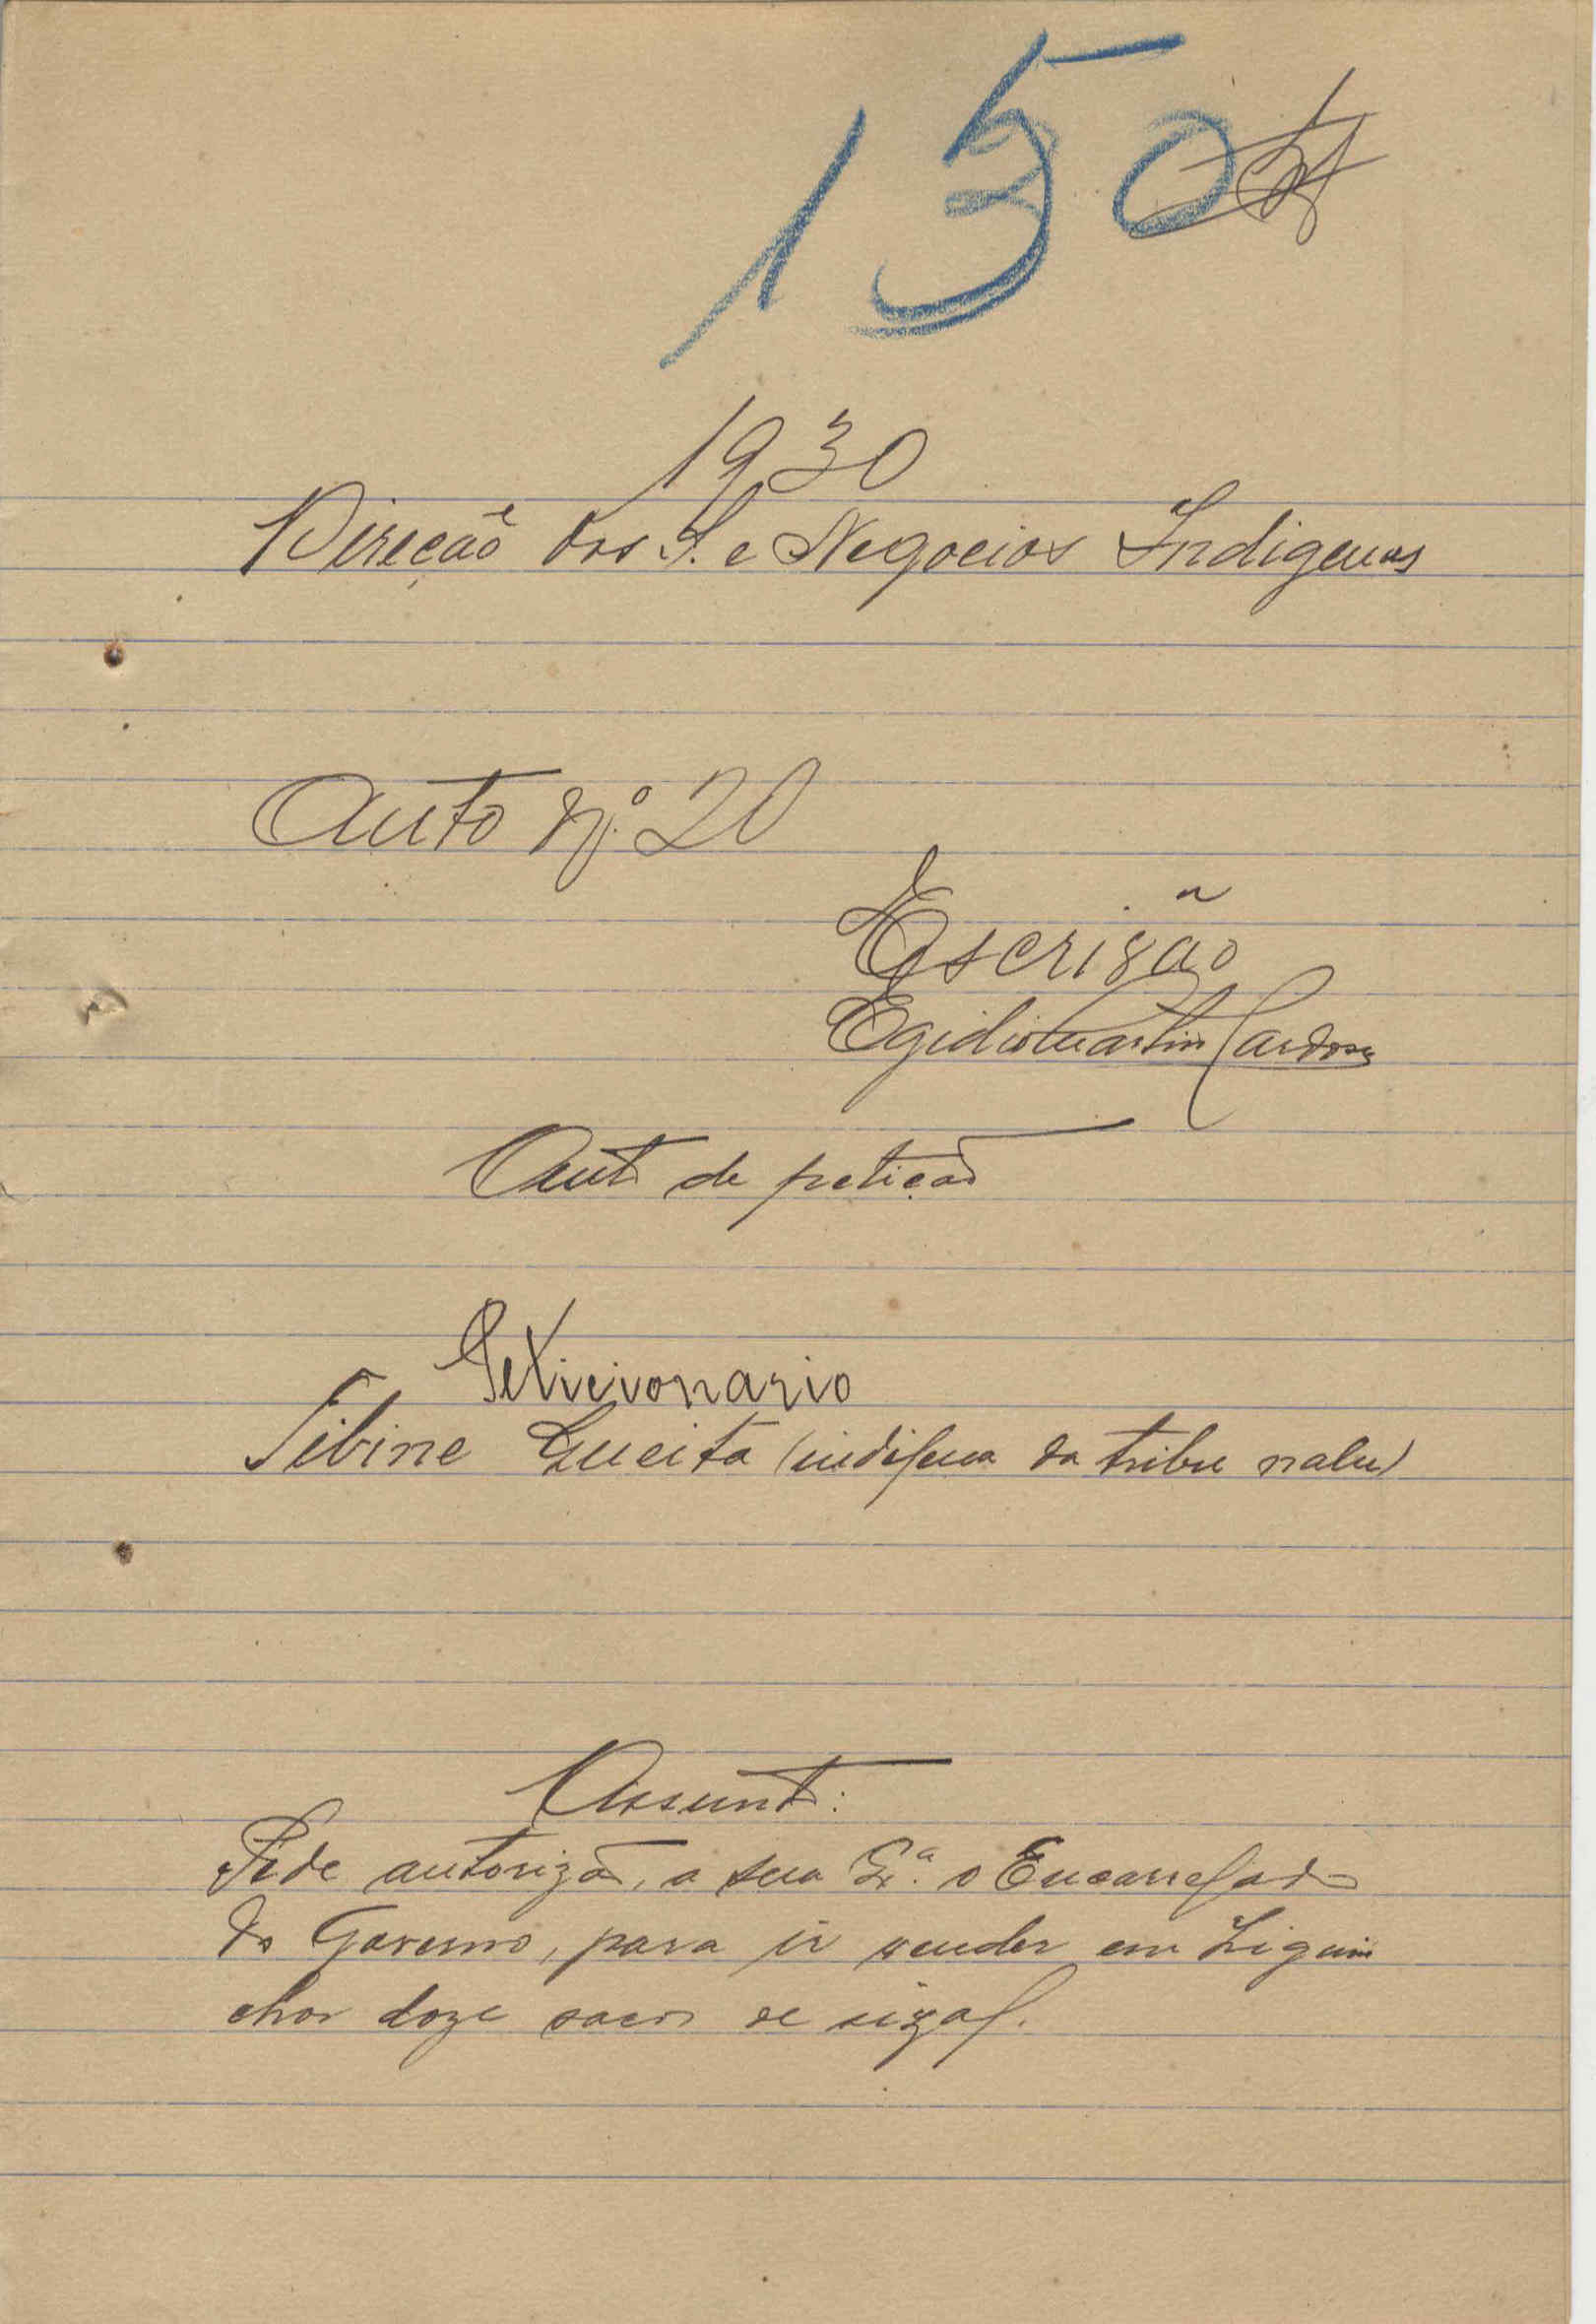 150
1930
Direcão dos S. e Negocios Indigenas
Auto Nº 20
Escrivão
Egidio Martins Cardoso
Auto de petição
Peticionario
Sibine Gueita (indigena da tribu nalu)
Assunto:
Pede autorizão, a sua Exª. o Encarregado
do Governo, para ir vender em Ziguin
chor doze sacos de sizal.